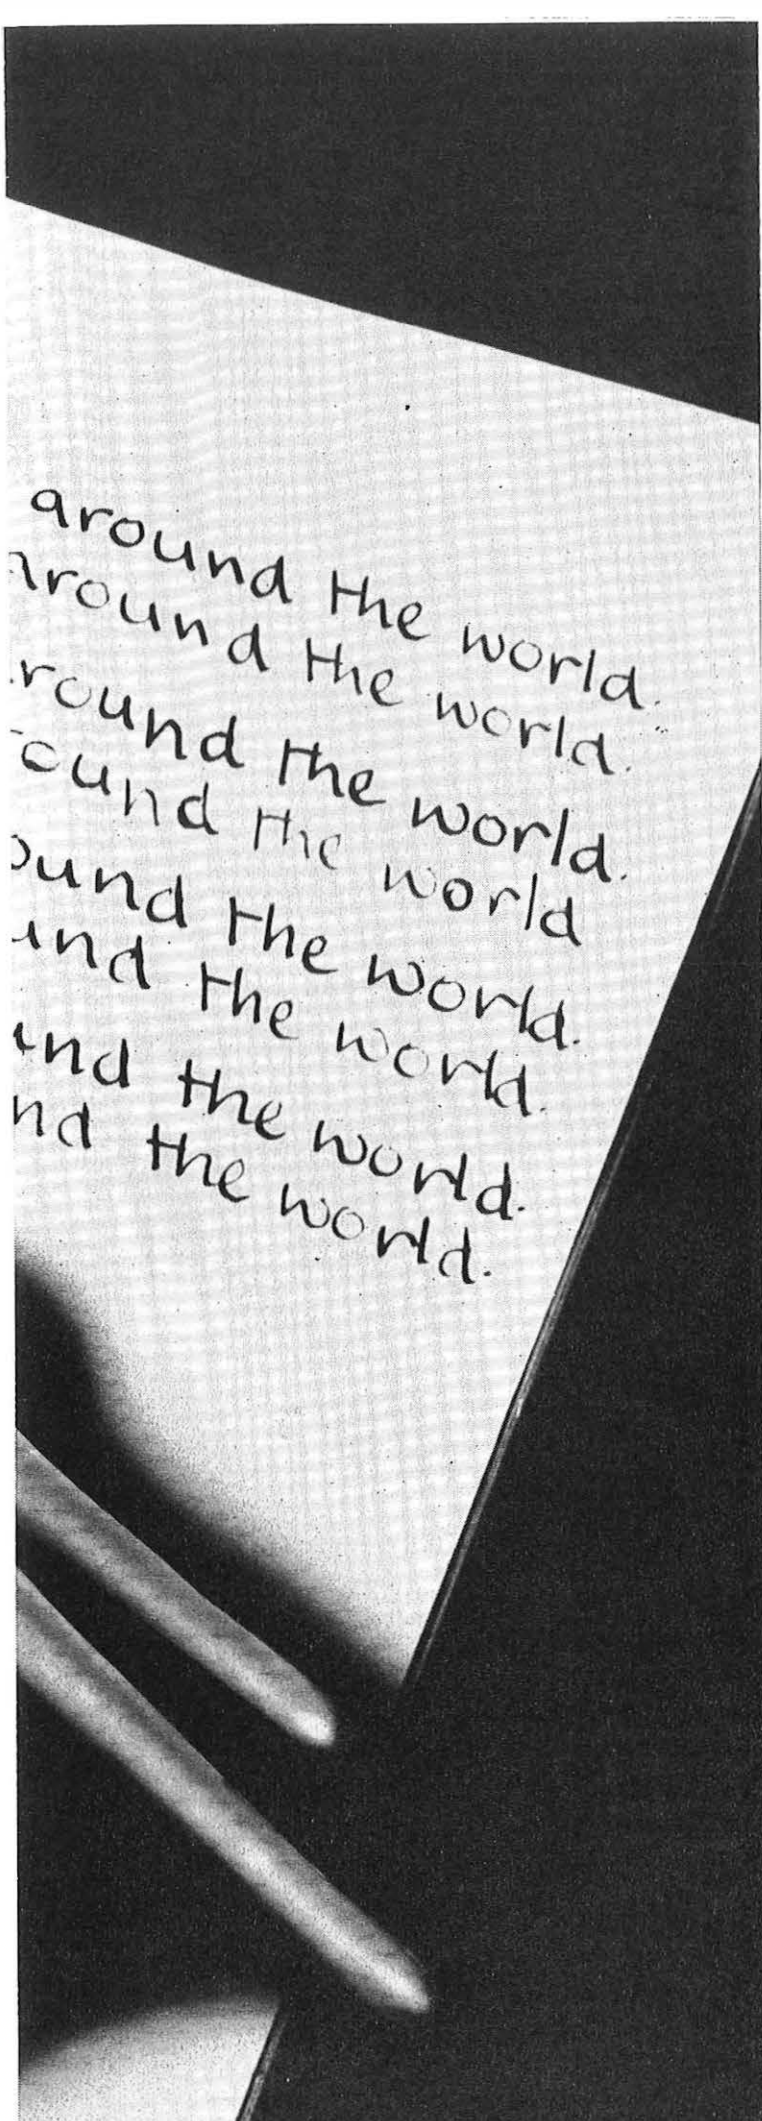 around the world.
around the world.
round the world.
ound the world
ound the world.
und the world.
und the world.
nd the world.